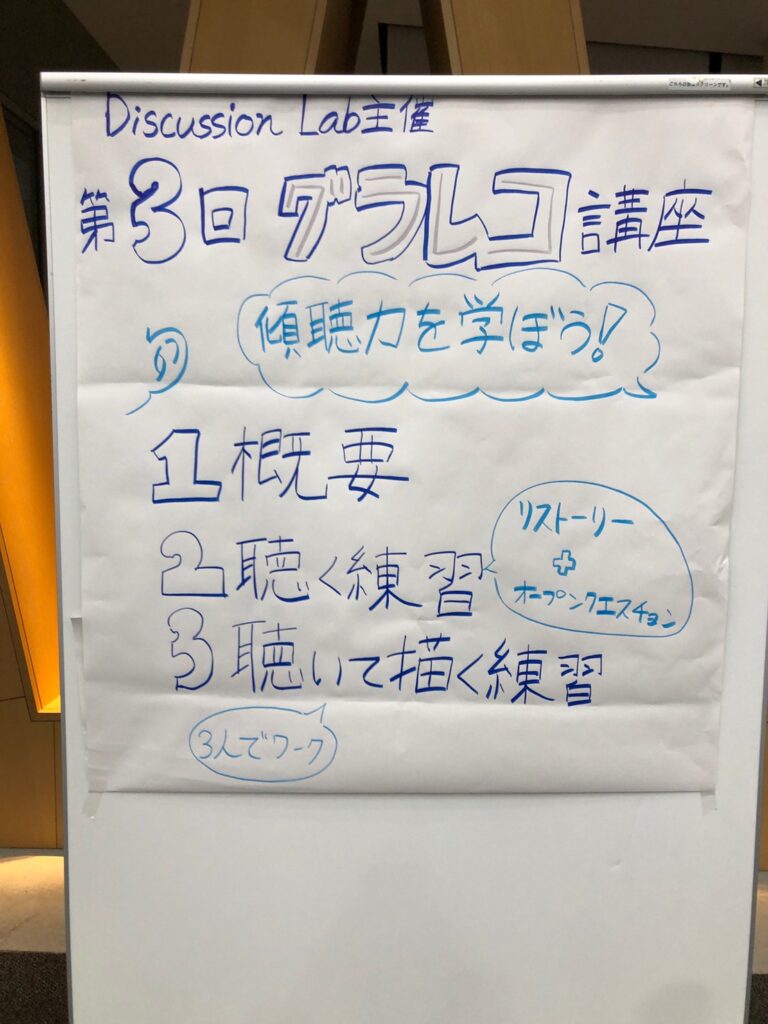 Discussion Lab主催
第3回 グラレコ講座
傾聴力を学ぼう!
1 概要
2 聴く練習
リストーリー
+
オープンクエスチョン
3 聴いて描く練習
3人でワーク